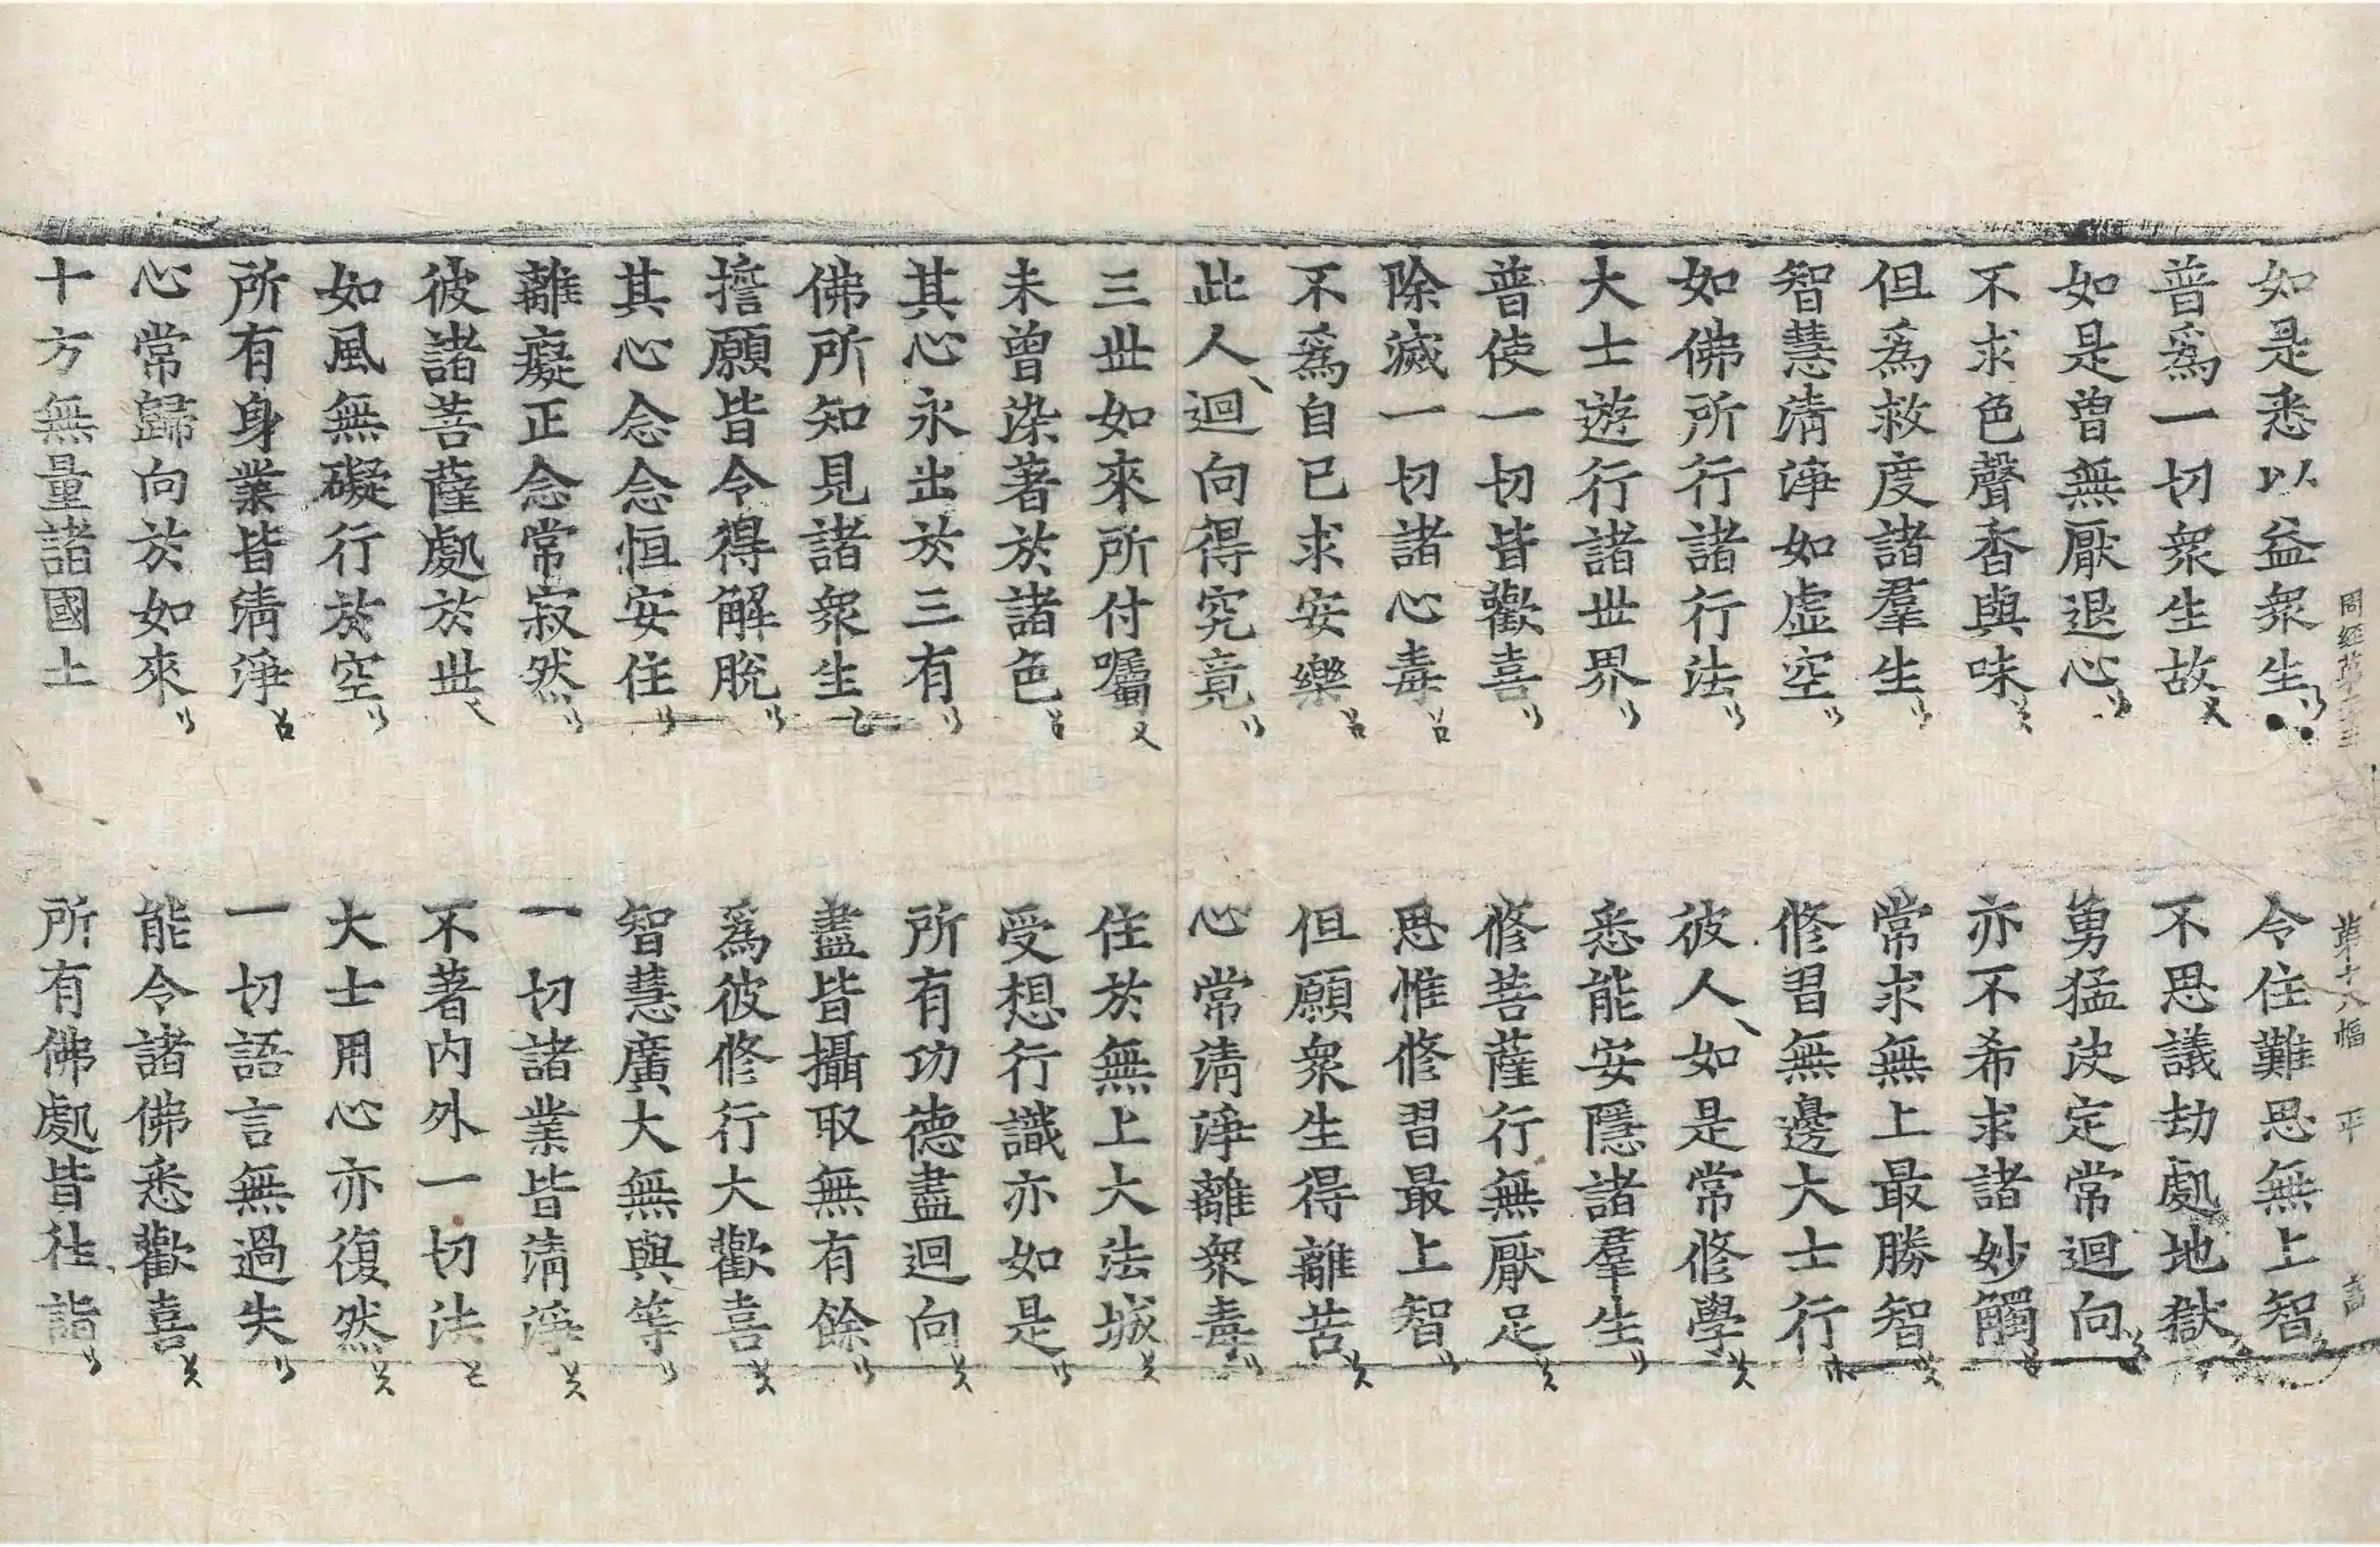 周經第二十三 第十八幅 平
如是悉以益衆生 令住難思無上智
普爲一切衆生故 不思議劫處地獄
如是曾無厭退心 勇猛決定常迴向
不求色聲香與味 亦不希求諸妙觸
但爲救度諸羣生 常求無上最勝智
智慧清淨如虛空 修習無邊大士行
如佛所行諸行法 彼人如是常修學
大士遊行諸世界 悉能安隱諸羣生
普使一切皆歡喜 修菩薩行無厭足
除滅一切諸心毒 思惟修習最上智
不爲自己求安樂 但願衆生得離苦
此人迴向得究竟 心常清淨離衆毒
三世如來所付囑 住於無上大法城
未曾染著於諸色 受想行識亦如是
其心永出於三有 所有功德盡迴向
佛所知見諸衆生 盡皆攝取無有餘
擔願皆令得解脫 爲彼修行大歡喜
其心念念恒安住 智慧廣大無與等
離癡正念常寂然 一切諸業皆清淨
彼諸菩薩處於世 不著內外一切法
如風無礙行於空 大士用心亦復然
所有身業皆清淨 一切語言無過失
心常歸向於如來 能令諸佛悉歡喜
十方無量諸國土 所有佛處皆往詣